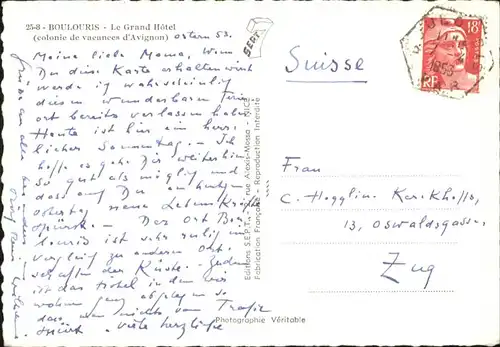 25-8 - BOULOURIS - Le Grand Hôtel
(colonie de vacances d'Avignon) Ostern 53.
Meine liebe Mama, Wenn
Du diese Karte erhalten wirst
werde ich wahrscheinlich
diesen wunderbaren Ferien-
ort bereits verlassen haben.
Heute ist hier ein herr-
licher Sonnentag. - Ich
hoffe es geht Dir weiterhin
so gut als möglich und
dass auf Du am heutigen
Ostertag neue Lebenskräfte
spürst. - Der Ort Bou-
louris ist sehr ruhig im
Vergleich zu anderen Ort-
schaften der Küste. - Zudem
ist das Hotel in dem wir
wohnen ganz abgelegen so
dass man nichts vom Trafic
spürt. - viele herzliche
SEPT
Editions S.E.P.T. - rue Alexis-Mossa - NICE
Fabrication Française - Reproduction Interdite
Photographie Véritable
18F
RF
Suisse
Frau
C. Hegglin-Kerckhoffs,
13, Oswaldsgasse,
Zug